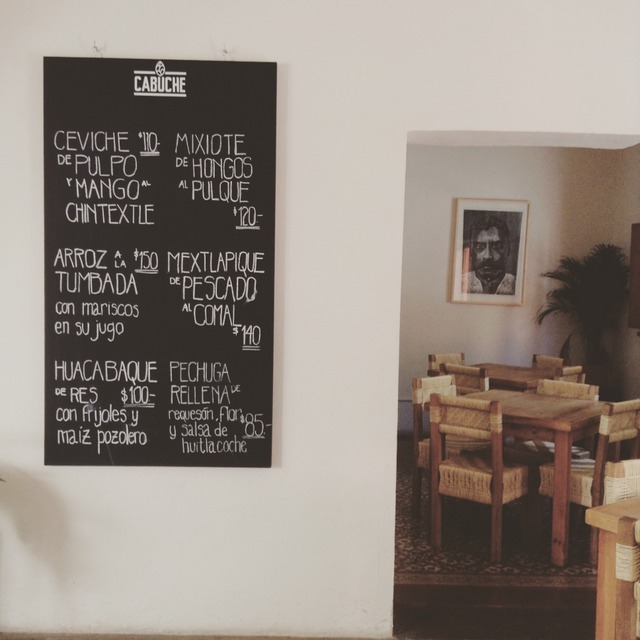 CABUCHE
CEVICHE $110-
DE PULPO
Y MANGO AL
CHINTEXTLE
MIXIOTE
DE HONGOS
AL PULQUE
$120-
ARROZ A LA $150
TUMBADA
con mariscos
en su jugo
MEXTLAPIQUE
DE PESCADO
AL COMAL
$140
HUACABAQUE
DE RES $100-
con frijoles y
maíz pozolero
PECHUGA
RELLENA DE
requesón, flor
y salsa de $85.-
huitlacoche